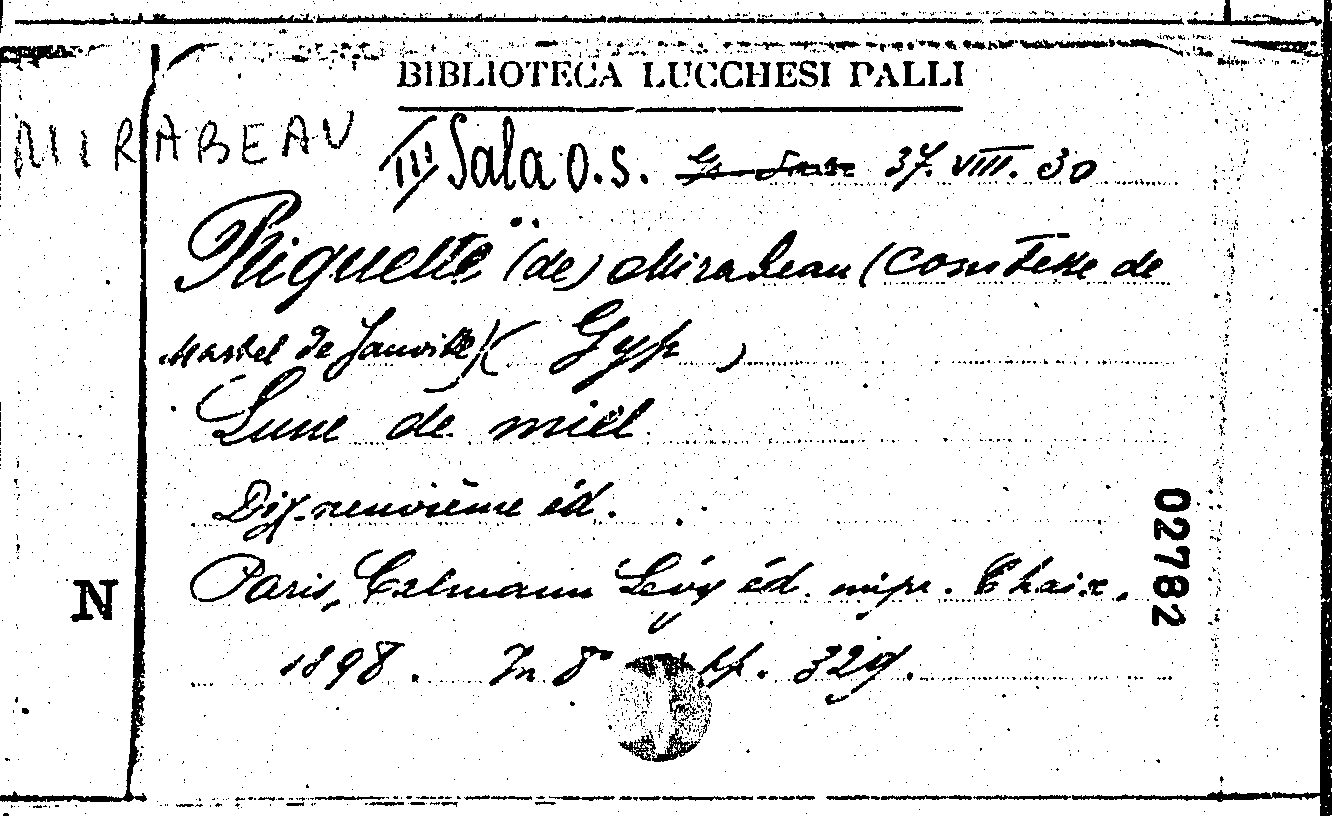 BIBLIOTECA LUCCHESI PALLI
MIRABEAU
III Sala O.S. 37. VIII. 30
Riquetti (de) Mirabeau (Comtesse de
Martel de Janville) ( Gyp )
Lune de miel
Dix-neuvième éd.
Paris, Calmann Lévy éd. impr. Chaix.
1898. In 8° pp. 329.
N
02782